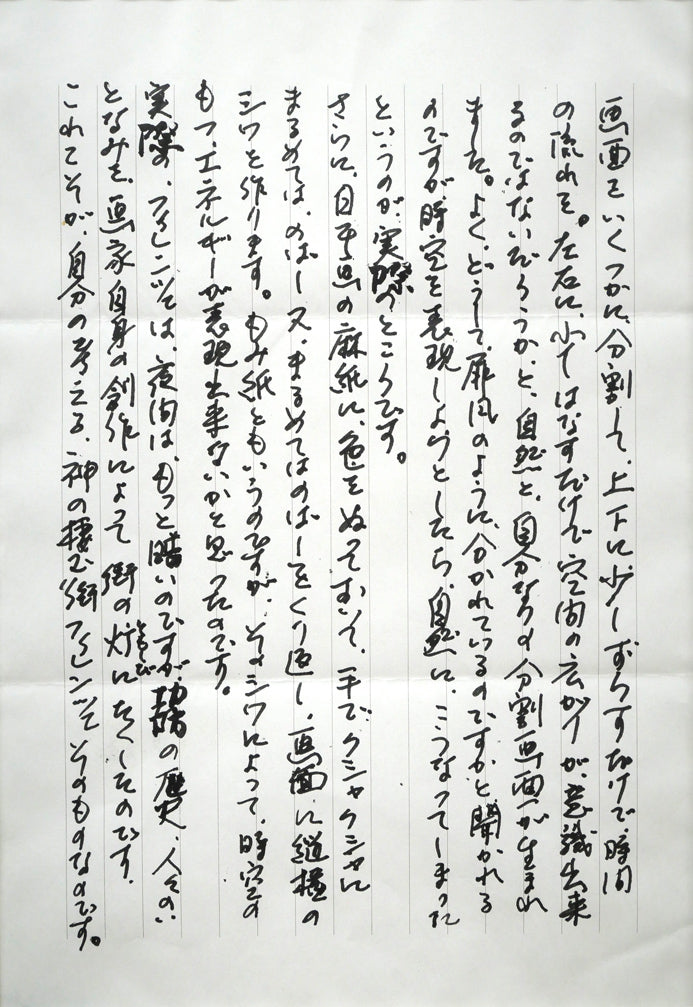 画面をいくつかに、分割して、上下に少しずらすだけで、時間
の流れを。左右に、少しはなすだけで、空間の広がりが、意識出来
るのではないだろうか、と、自然と、自分なりの分割画面が生まれ
ました。よく、どうして、屏風のように、分かれているのですかと聞かれる
のですが時空を表現しようとしたら、自然に、こうなってしまった
というのが、実際のところです。
さらに、日本画の麻紙に、色をぬっておいて、手でクシャクシャに
まるめては、のばし、又、まるめてはのばしをくり返し、画面に縦横の
シワを作ります。もみ紙ともいうのですが、そのシワによって、時空の
もつ、エネルギーが表現出来ないかと思ったのです。
実際の、フィレンツェは、夜間は、もっと暗いのですが、の歴史、人々のい
となみを、画家自身の創作によって街の灯にたくしたのです。
これこそが、自分の考える、神の棲む街フィレンツェそのものなのです。